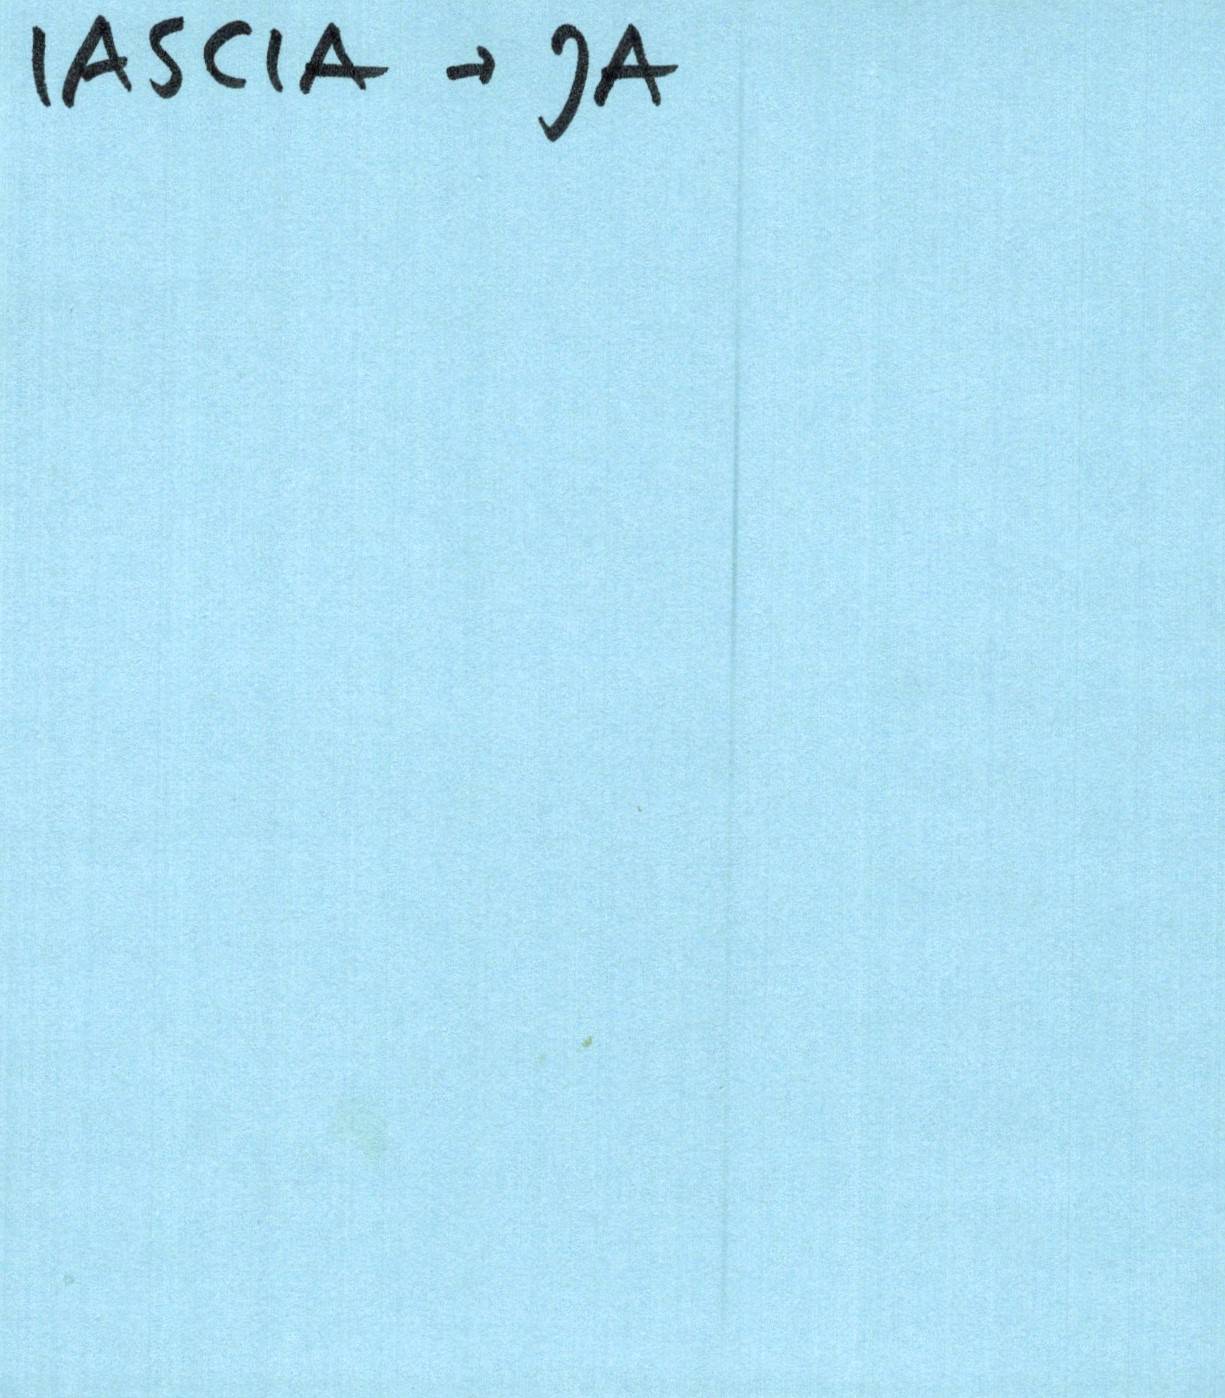 IASCIA → JA